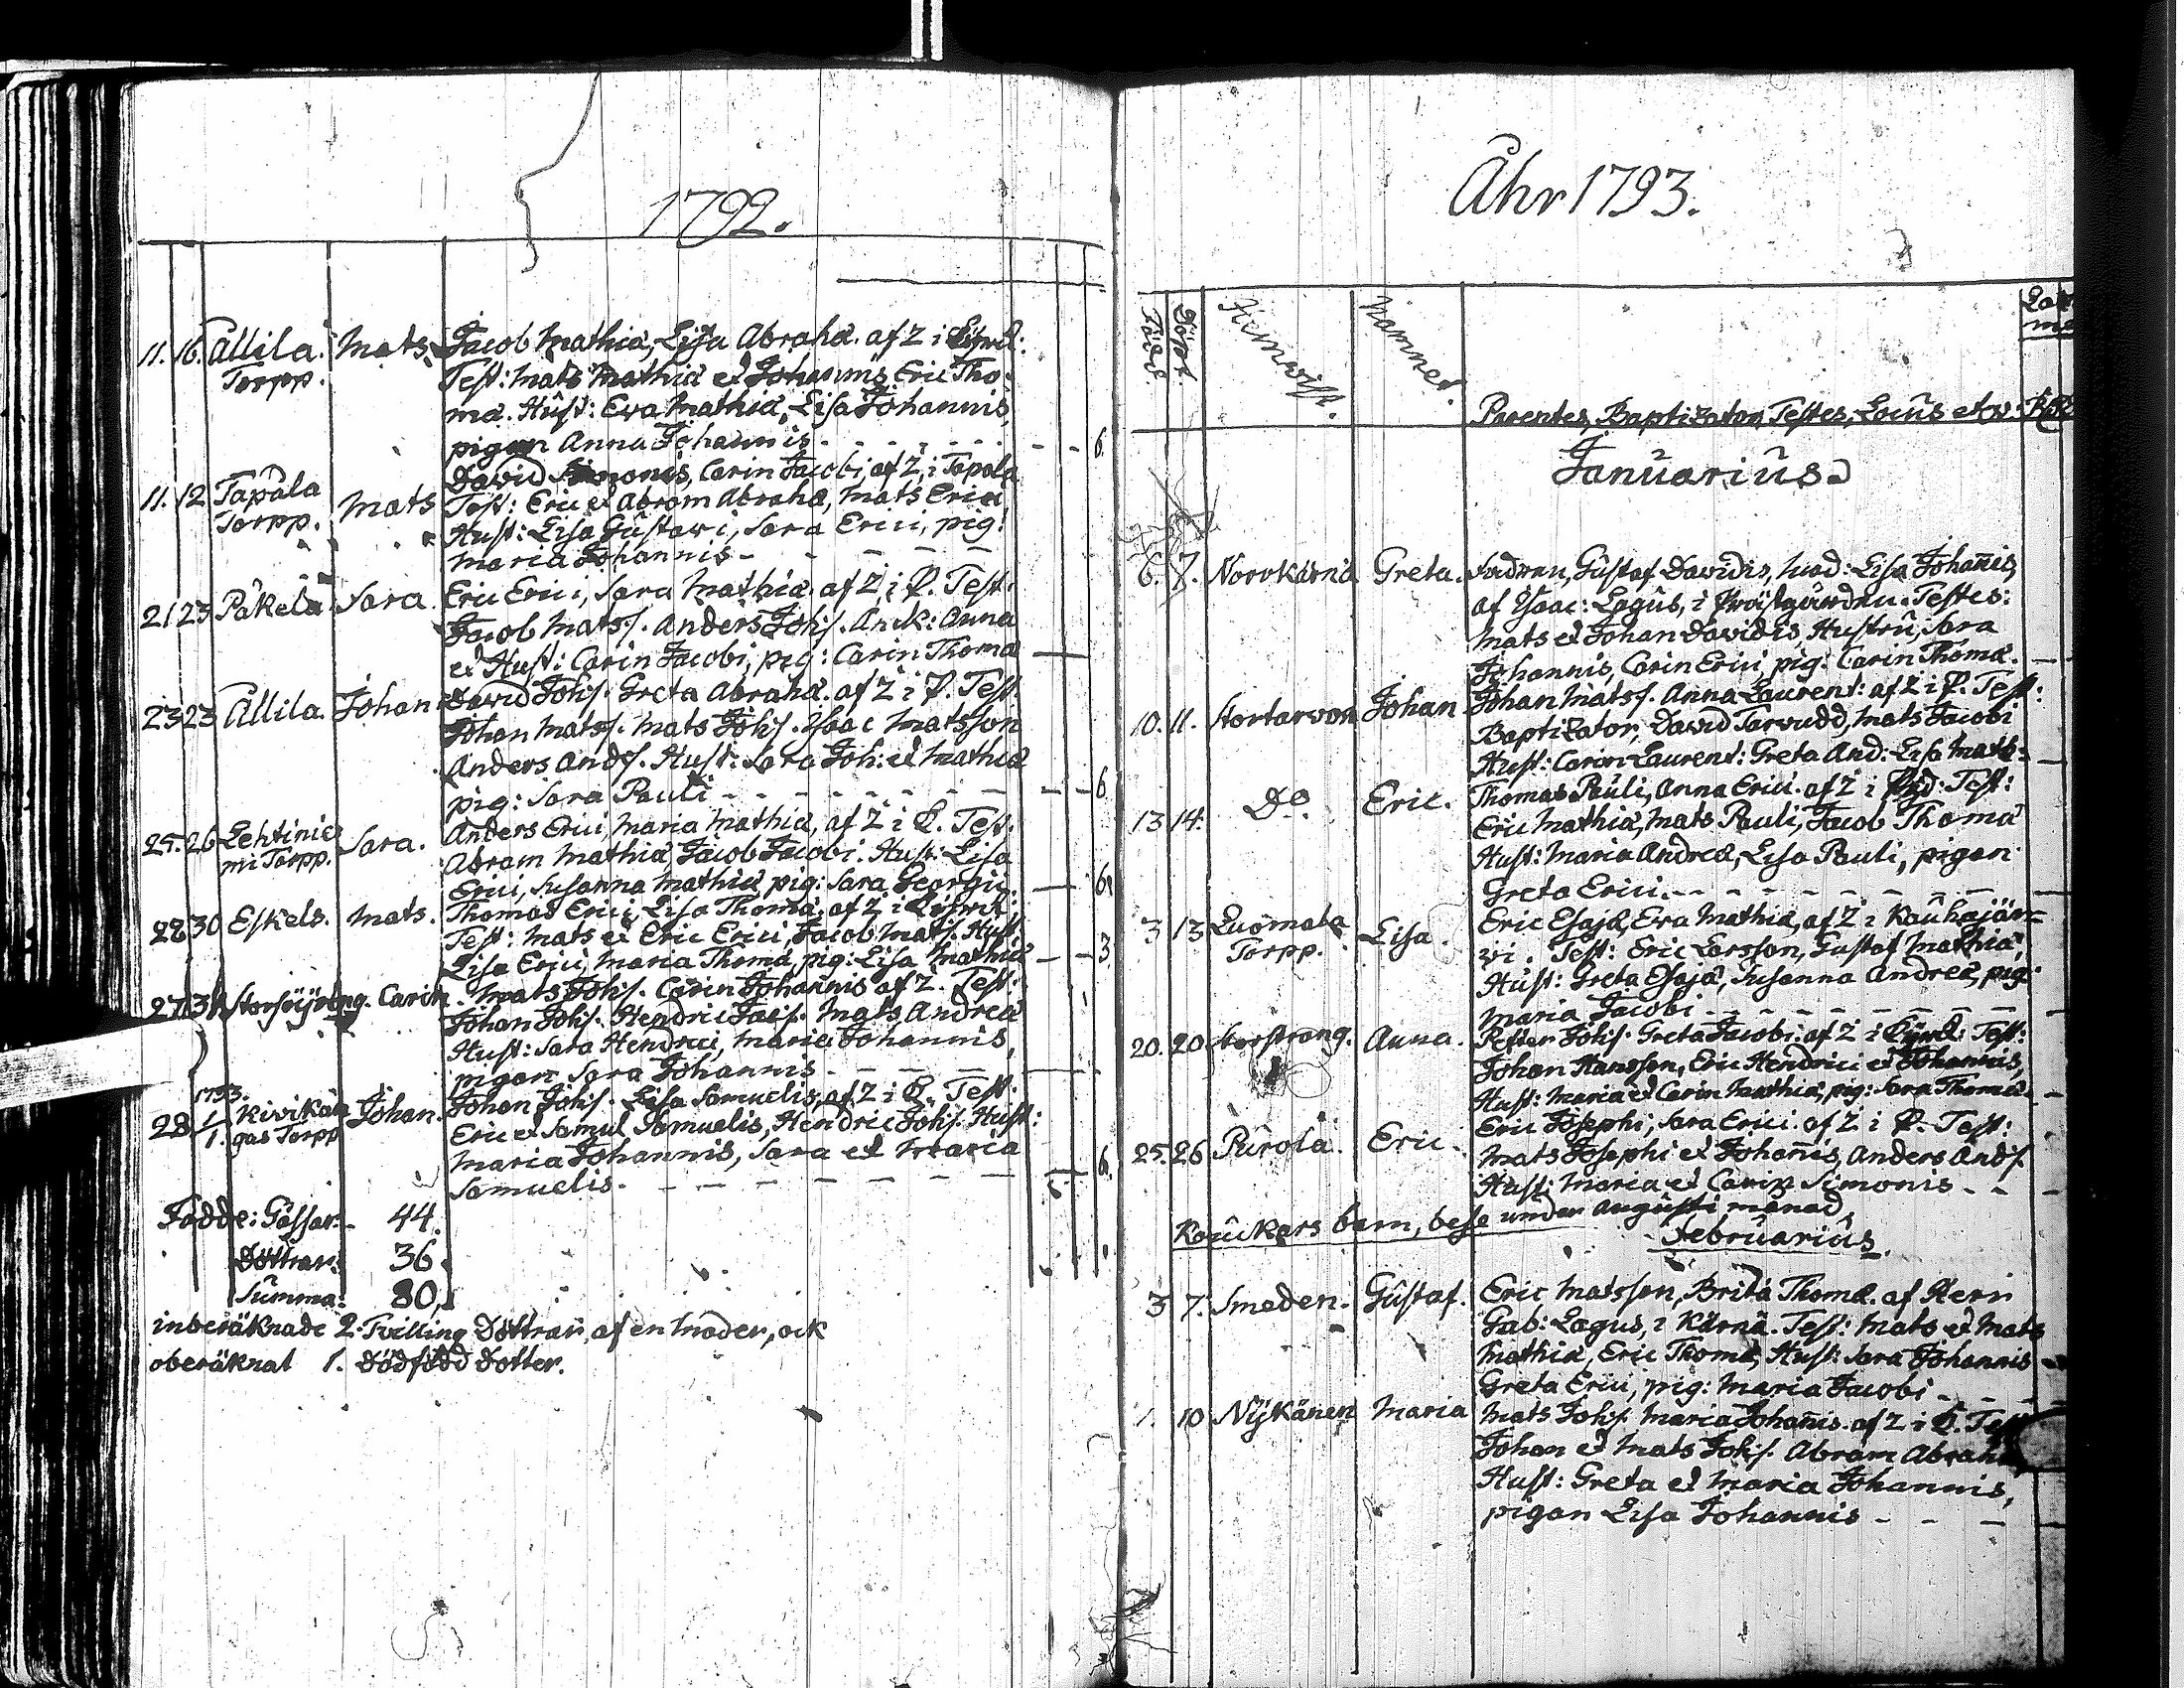 1792.
11. 16. Allila Torpp. Mats. Jacob Mathiæ, Lisa Abrahæ. af Z i
Test: Mats Mathiæ et Johannis Eric Tho-
mæ. Hust: Eva Mathiæ, Lisa Johannis,
pigan Anna Johannis - - - - 6.
11. 12 Tapala Torpp. Mats David Simonis, Carin Jacobi, af Z, i Tapola
Test: Eric et Abram Abrahæ, Mats Erici
Hust: Lisa Gustavi, Sara Erici, pig:
Maria Johannis - - - - -
21 23 Päkelä Sara. Eric Erici, Sara Mathiæ. af Z i P. Test:
Jacob Matss. Anders Johs. Anck: Anna
et Hust: Carin Jacobi, pig: Carin Thomæ
23 23 Allila. Johan David Johs. Greta Abrahæ. af Z i P. Test.
Johan Matss. Mats Johs. Isaac Matsson
Anders Ands. Hust: Sara Joh: et Mathiæ
pig: Sara Pauli - - - - - - 6
25. 26 Lehtinie mi Torpp. Sara. Anders Erici, Maria Mathiæ, af Z i P. Test:
Abram Mathiæ, Jacob Jacobi. Hust: Lisa
Erici, Susanna Mathiæ pig: Sara Georgii. 6.
28 30 Eskels. Mats. Thomas Erici, Lisa Thomæ. af Z i
Test: Mats et Eric Erici, Jacob Mats. Hust:
Lisa Erici, Maria Thomæ, pig: Lisa Mathiæ - - 3
27 31 Carin. Mats Johs. Carin Johannis af Z. Test:
Johan Johs. Hendric Jacs. Mats Andreæ
Hust: Sara Hendrici, Maria Johannis,
pigan Sara Johannis - - - -
1793.
28 1/1. Kivikan gas Torpp Johan. Johan Johs. Lisa Samuelis, af Z i P. Test:
Eric et Samul Samuelis, Hendric Johs. Hust:
Maria Johannis, Sara et Maria
Samuelis. - - - - - - 6.
Födde: Gossar - 44.
Döttrar: 36.
Summa: 80.
inberäknade 2. Tvilling Döttrar, af en Moder, ock
oberäknat 1. Dödfödd Dotter.
Åhr 1793.
Född. Döpt. Hemvist. Namnet. Parentes, Baptizator, Testes, Locus etc:
Januarius.
6. 7. Norrkärnä Greta. Fadren, Gustaf Davidis, Mod: Lisa Johañis,
af Isaac: Lagus, i Prästgården. Testes:
Mats et Johan Davidis, Hustru, Sara
Johannis, Carin Erici, pig: Carin Thomæ. -
10. 11. Stortarvon Johan Johan Matss. Anna Laurent: af Z i P. Test:
Baptizator, David Tarvudd, Mats Jacobi
Hust: Carin Laurent: Greta And: Lisa Math:
13 14. Do. Eric. Thomas Pauli, Anna Erici. af Z i Test:
Eric Mathiæ, Mats Pauli, Jacob Thomæ
Hust: Maria Andreæ, Lisa Pauli, pigan
Greta Erici. - - - - - - -
3 13 Luomala Torpp. Lisa. Eric Esajæ, Eva Mathiæ, af Z i Kauhajär-
vi. Test: Eric Larsson, Gustaf Mathiæ,
Hust: Greta Esajæ, Susanna Andreæ, pig:
Maria Jacobi - - - - - - -
20. 20 Norstrång. Anna. Petter Johs. Greta Jacobi. af Z i Test:
Johan Hansson, Eric Hendrici et Johannis,
Hust: Maria et Carin Mathiæ, pig: Sara Thomæ. -
25. 26 Purola. Eric. Eric Josephi, Sara Erici. af Z i P. Test:
Mats Josephi et Johañis, Anders Ands.
Hust: Maria et Carin Simonis - - -
barn, bese under Augusti månad.
Februarius.
3 7. Smeden. Gustaf. Eric Matsson, Brita Thomæ. af Herr
Gab: Lagus, i Kärnä. Test: Mats et Mats
Mathiæ, Eric Thomæ, Hust: Sara Johannis
Greta Erici, pig: Maria Jacobi - - -
1. 10 Nÿkänen Maria Mats Johs. Maria Johañis. af Z i P. Test
Johan et Mats Johs. Abram Abrah
Hust: Greta et Maria Johannis,
pigan Lisa Johannis - - - -